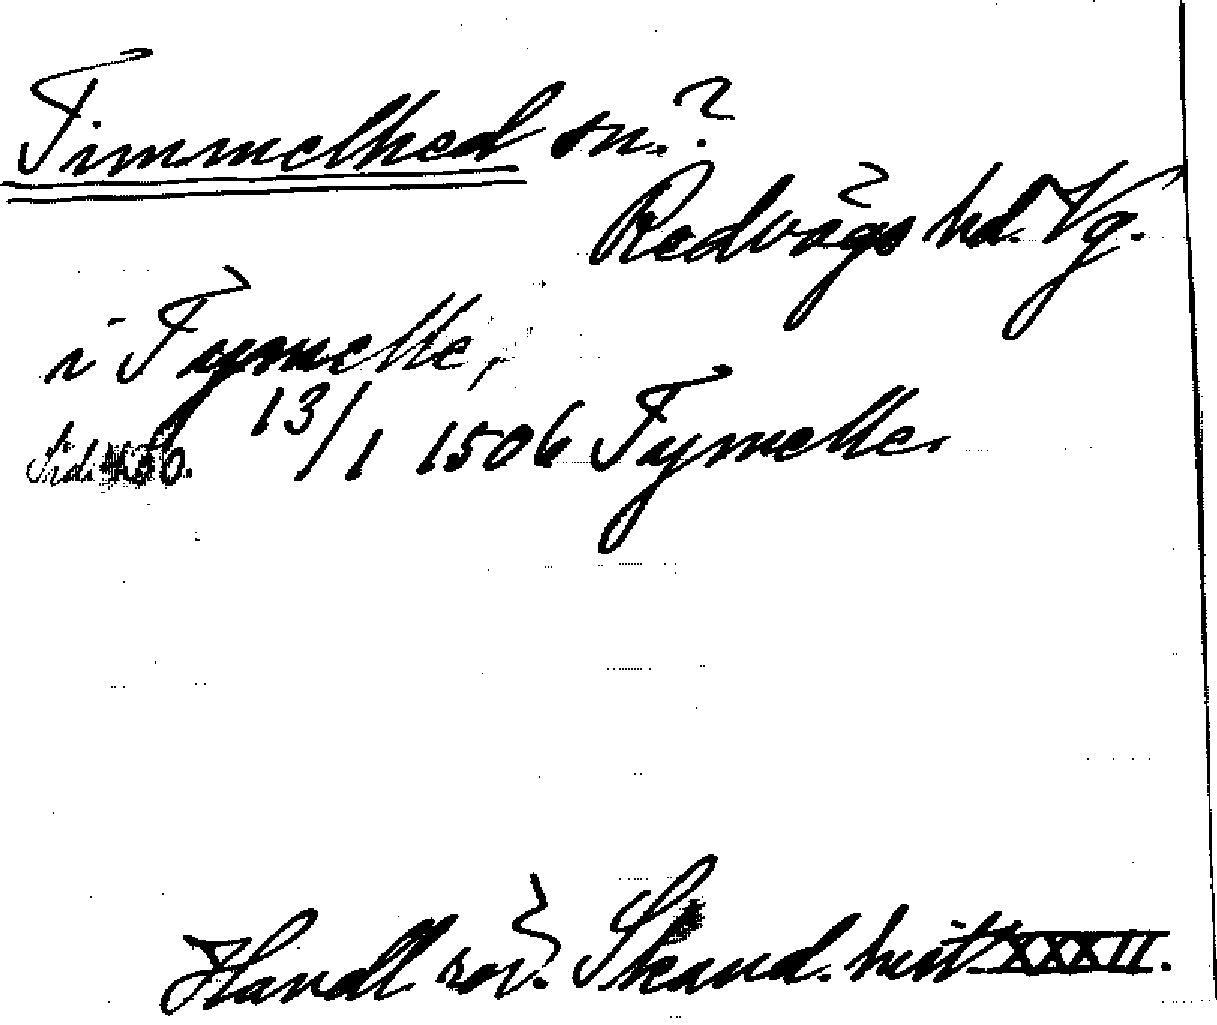 Timmelhed sn.?
Redvägs hd. Vg.
i Tymelle,
13/1 1506 Tymelle.
Handl rör. Skand. hist. XXXII.